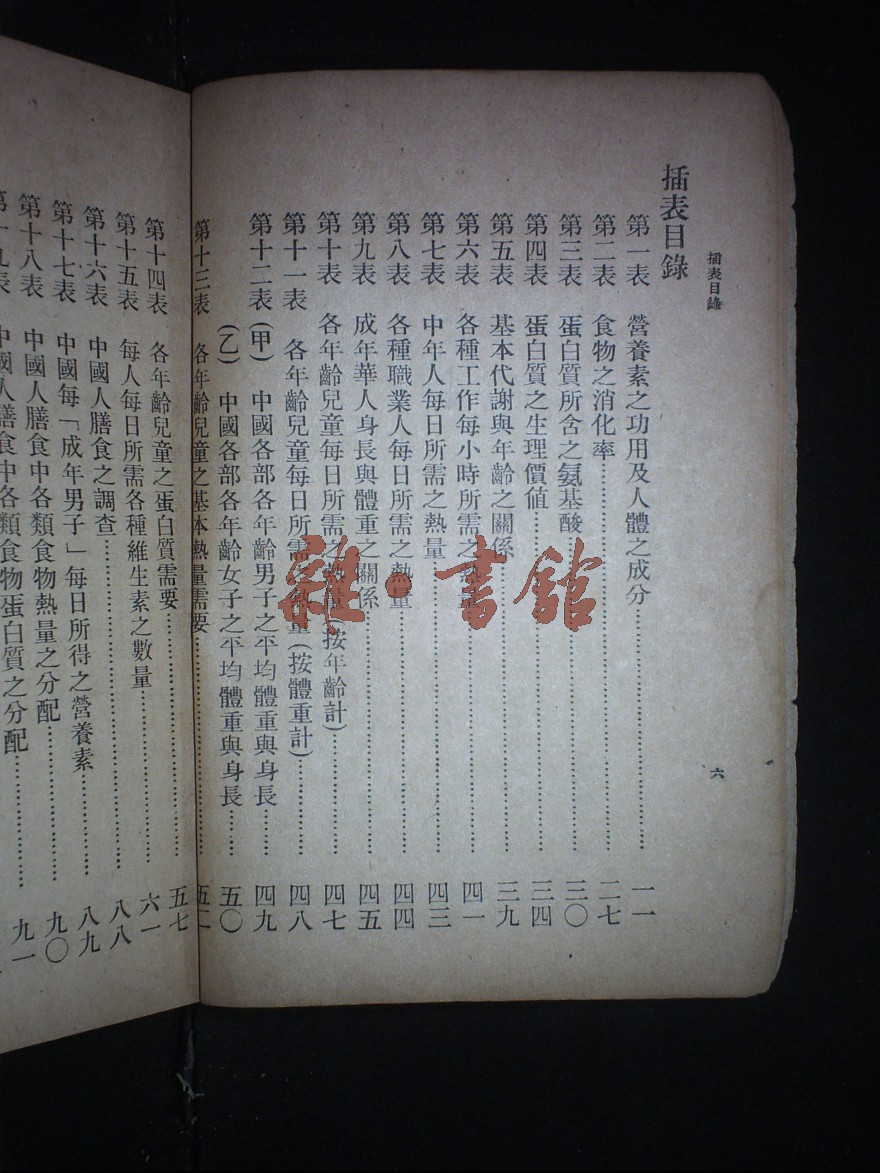 插表目錄
六
插表目錄
第一表 營養素之功用及人體之成分 一一
第二表 食物之消化率 二七
第三表 蛋白質所含之氨基酸 三〇
第四表 蛋白質之生理價值 三四
第五表 基本代謝與年齡之關係 三九
第六表 各種工作每小時所需之熱量 四一
第七表 中年人每日所需之熱量 四三
第八表 各種職業人每日所需之熱量 四四
第九表 成年華人身長與體重之關係 四五
第十表 各年齡兒童每日所需之熱量(按年齡計) 四七
第十一表 各年齡兒童每日所需之熱量(按體重計) 四八
第十二表 (甲) 中國各部各年齡男子之平均體重與身長 四九
(乙) 中國各部各年齡女子之平均體重與身長 五〇
第十三表 各年齡兒童之基本熱量需要 五二
第十四表 各年齡兒童之蛋白質需要 五七
第十五表 每人每日所需各種維生素之數量 六一
第十六表 中國人膳食之調查 八八
第十七表 中國每「成年男子」每日所得之營養素 八九
第十八表 中國人膳食中各類食物熱量之分配 九〇
第十九表 中國人膳食中各類食物蛋白質之分配 九一
雜·書館